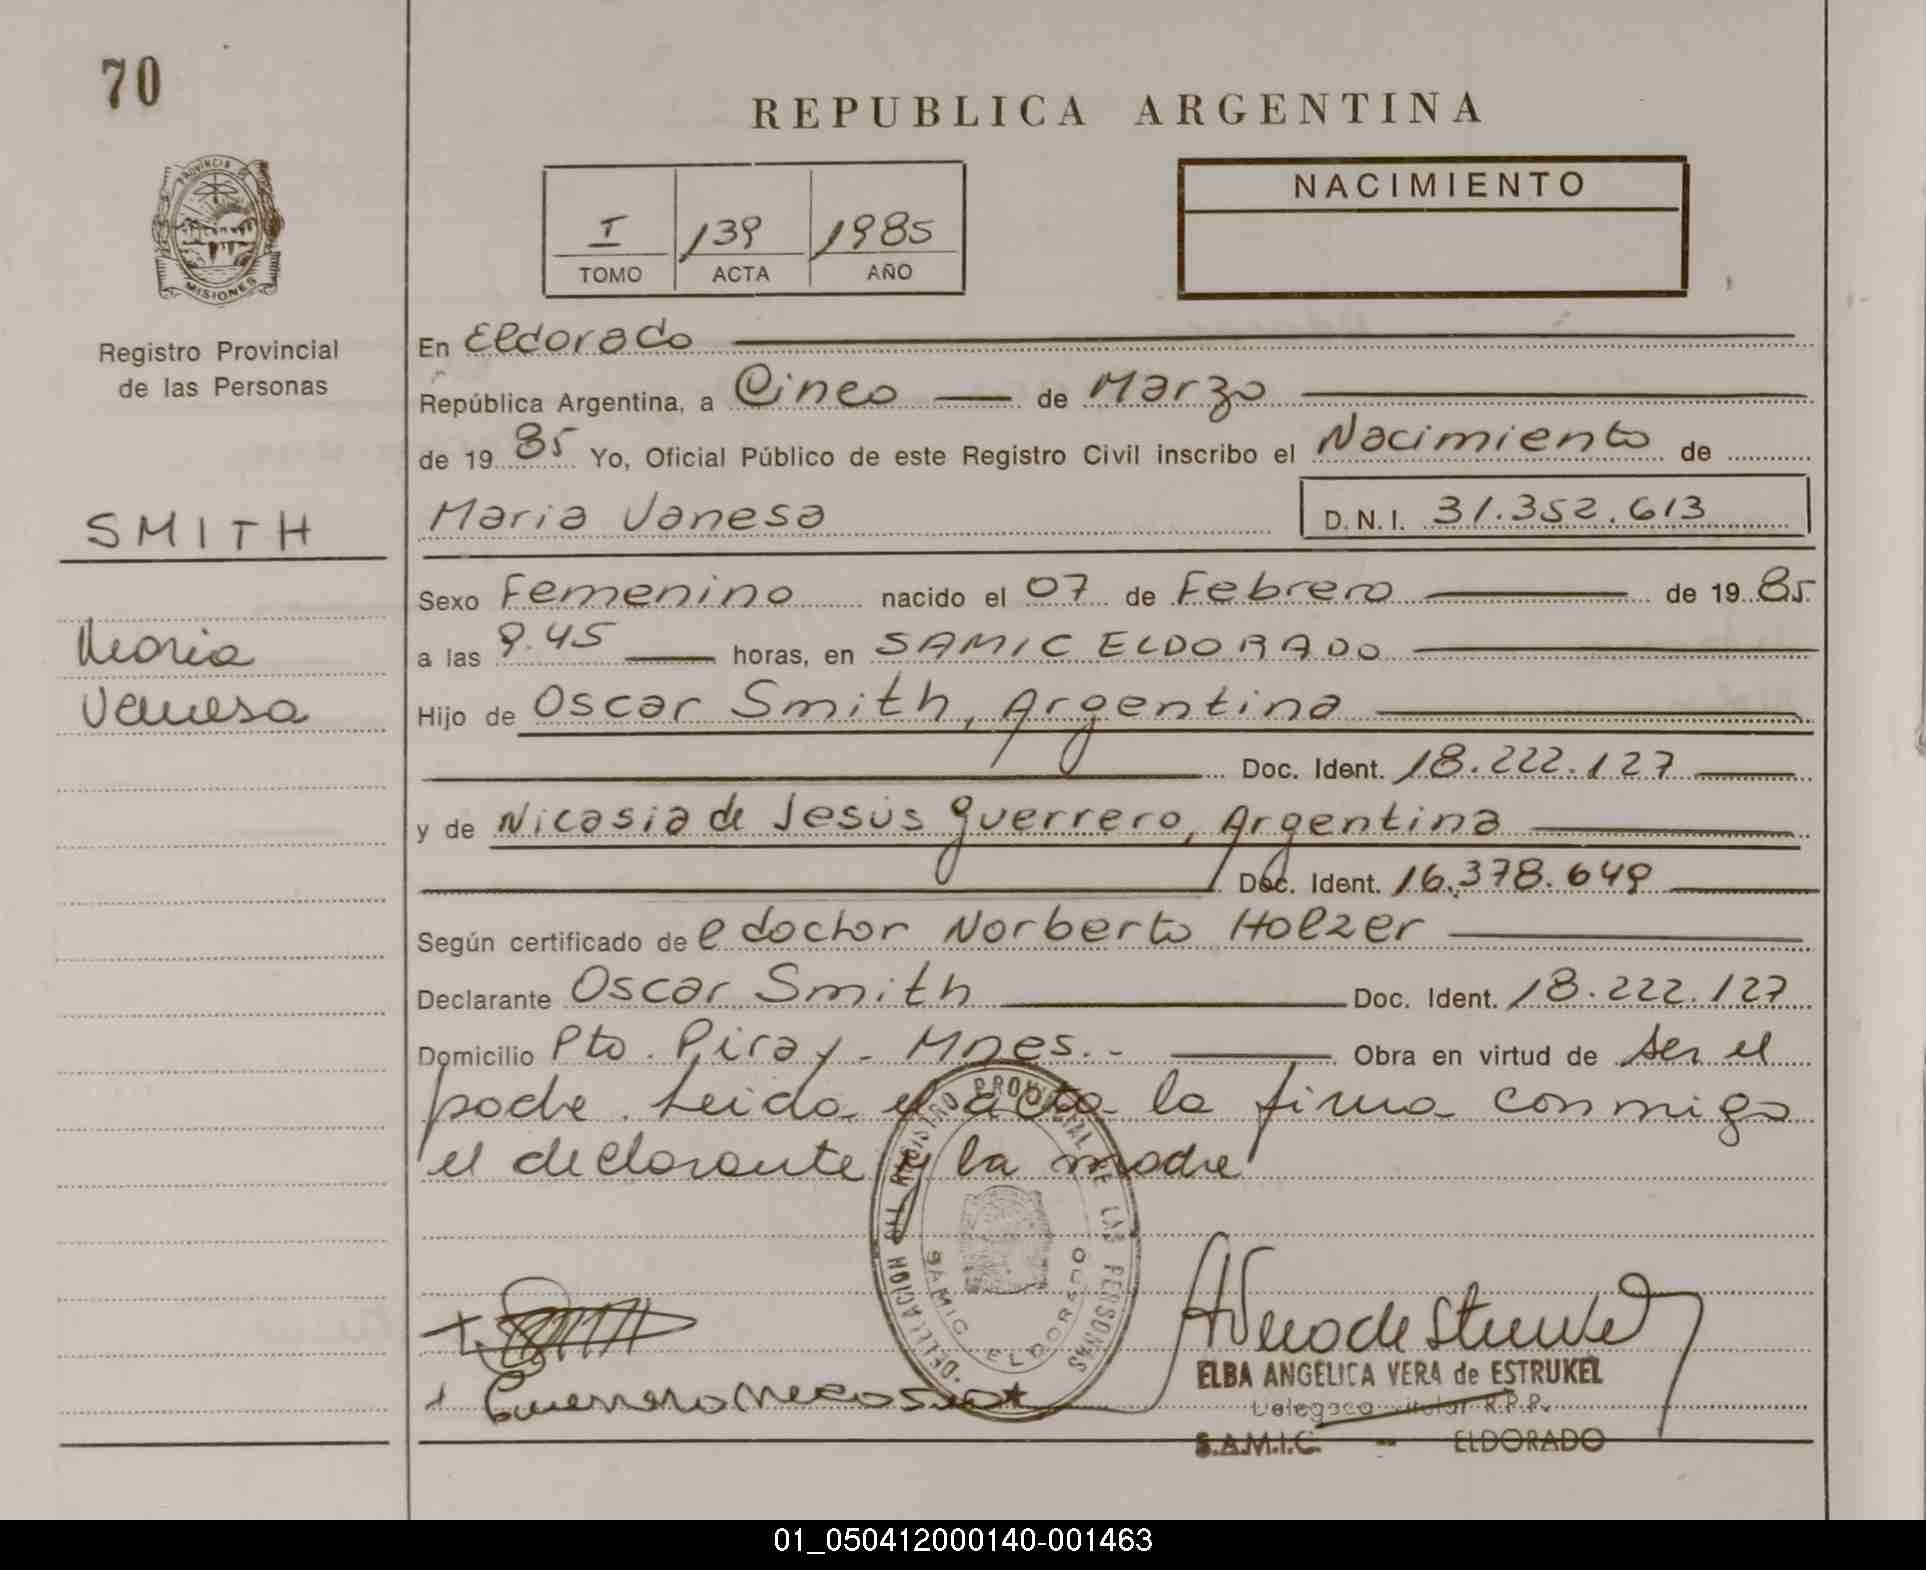 70
REPUBLICA ARGENTINA
PROVINCIA DE
MISIONES
Registro Provincial
de las Personas
I 139 1985
TOMO ACTA AÑO
NACIMIENTO
En Eldorado
República Argentina, a Cinco de Marzo
de 19 85 Yo, Oficial Público de este Registro Civil inscribo el Nacimiento de
SMITH
Maria Vanesa D.N.I. 31.352.613
Sexo Femenino nacido el 07 de Febrero de 19 85
Maria
Vanesa
a las 9.45 horas, en SAMIC ELDORADO
Hijo de Oscar Smith, Argentina
Doc. Ident. 18.222.127
y de Nicasia de Jesús Guerrero, Argentina
Doc. Ident. 16.378.649
Según certificado de el doctor Norberto Holzer
Declarante Oscar Smith Doc. Ident. 18.222.127
Domicilio Pto. Piray - Mnes.- Obra en virtud de ser el
padre. Leida el acta la firma conmigo
el declarante y la madre
DELEGACION DEL REGISTRO PROVINCIAL DE LAS PERSONAS
SAMIC ELDORADO
Guerrero
ELBA ANGELICA VERA de ESTRUKEL
R.P.P.
S.A.M.I.C. - ELDORADO
01_050412000140-001463